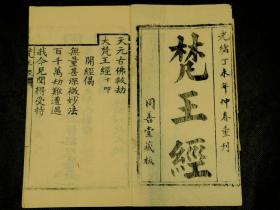 光緒丁未年仲春重刊
梵王經
同善堂藏板
天元古佛救劫
大梵王經十叩
開經偈
無量甚深微妙法
百千萬劫難遭遇
我今見聞得受持